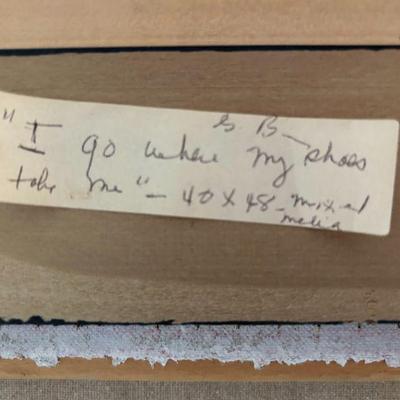 G. B—
"I go where my shoes
take me" - 40 X 48 - mixed
media